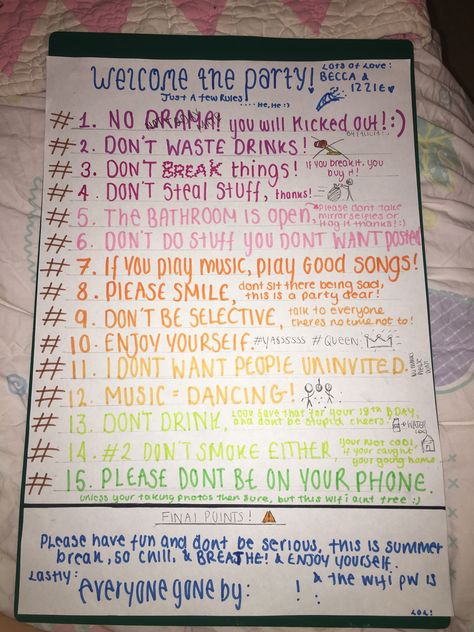 Welcome the party!
Lots of Love:
BECCA &
IZZIE
Just A few Rules
.... He, He :)
# 1. NO DRAMA! you will Kicked out! :)
# 2. DON'T WASTE DRINKS!
# 3. DON'T BREAK things! if you break it, you
buy it!
# 4. DON'T STEAL STUFF, thanks!
# 5. THE BATHROOM IS OPEN, please dont take
mirror selfies or
hog it thanks! :)
# 6. DON'T DO STUFF YOU DONT WANT POSTED
# 7. If YOU PLAY MUSIC, PLAY GOOD SONGS!
# 8. PLEASE SMILE, dont sit there being sad,
this is a party dear!
# 9. DON'T BE SELECTIVE, talk to everyone
theres no time not to!
# 10. ENJOY YOURSELF. #YASSSSSS #QUEEN
# 11. I DONT WANT PEOPLE UNINVITED.
# 12. MUSIC = DANCING!
# 13. DON'T DRINK, LOOK save that for your 18th BDAY,
and dont be stupid cheers.
+ WATER
# 14. #2 DON'T SMOKE EITHER, your NOT COOL,
if your caught
your going home
# 15. PLEASE DONT BE ON YOUR PHONE.
unless your taking photos then sure, but this wifi aint free :)
FINAL POINTS!
Please have fun and dont be serious, this is summer
break, so chill, & BREATHE! & ENJOY yourself.
Lastly:
everyone gone by: ! & the wifi pw is
:
LOL!